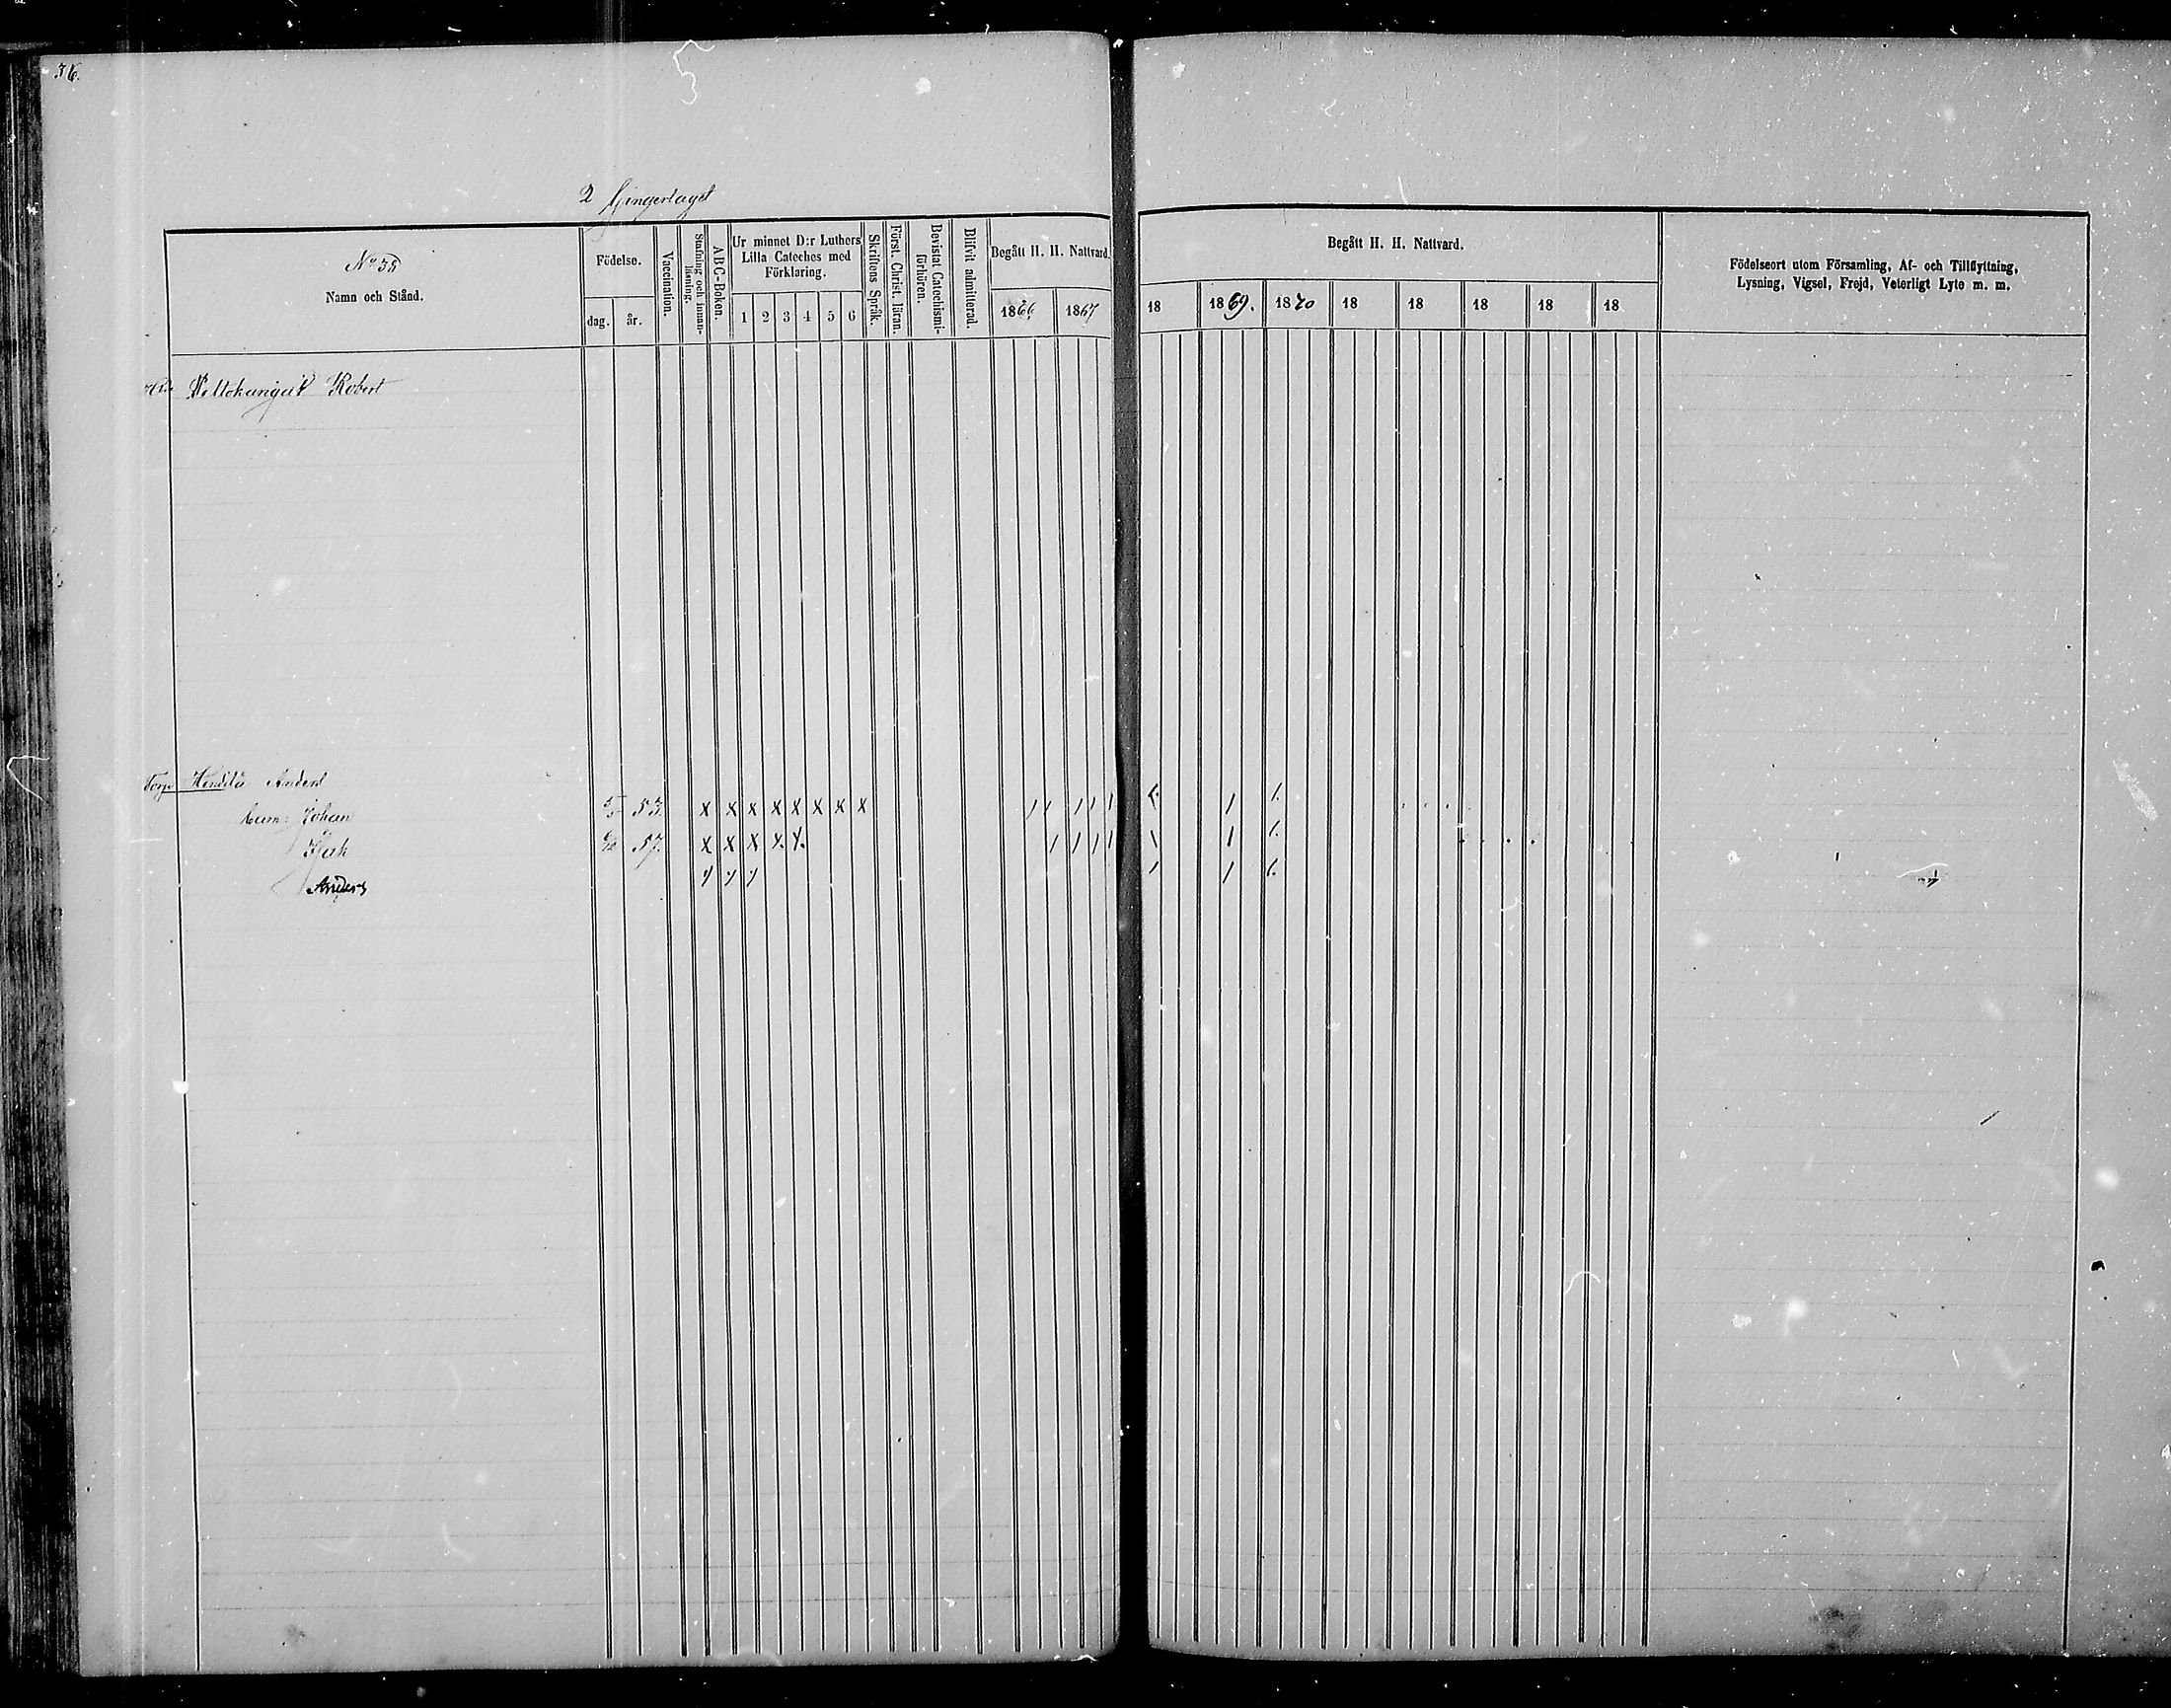 36.
2
No 35
Namn och Stånd.
Födelse.
dag. år.
Vaccination.
Stafning och innanläsning.
ABC-Boken.
Ur minnet D:r Luthers
Lilla Cateches med
Förklaring.
1 2 3 4 5 6
Skriftens Språk.
Först. Christ. läran.
Bevistat Catechismi-
förhören.
Blifvit admitterad.
Begått H. H. Nattvard.
1866 1867
Begått H. H. Nattvard.
18 1869. 1870 18 18 18 18 18
Födelseort utom Församling, Af- och Tillflyttning,
Lysning, Vigsel, Frejd, Veterligt Lyte m. m.
Robert
Torp Anders
Johan 53. x x x x x x x x
57. x x x x x
Anders